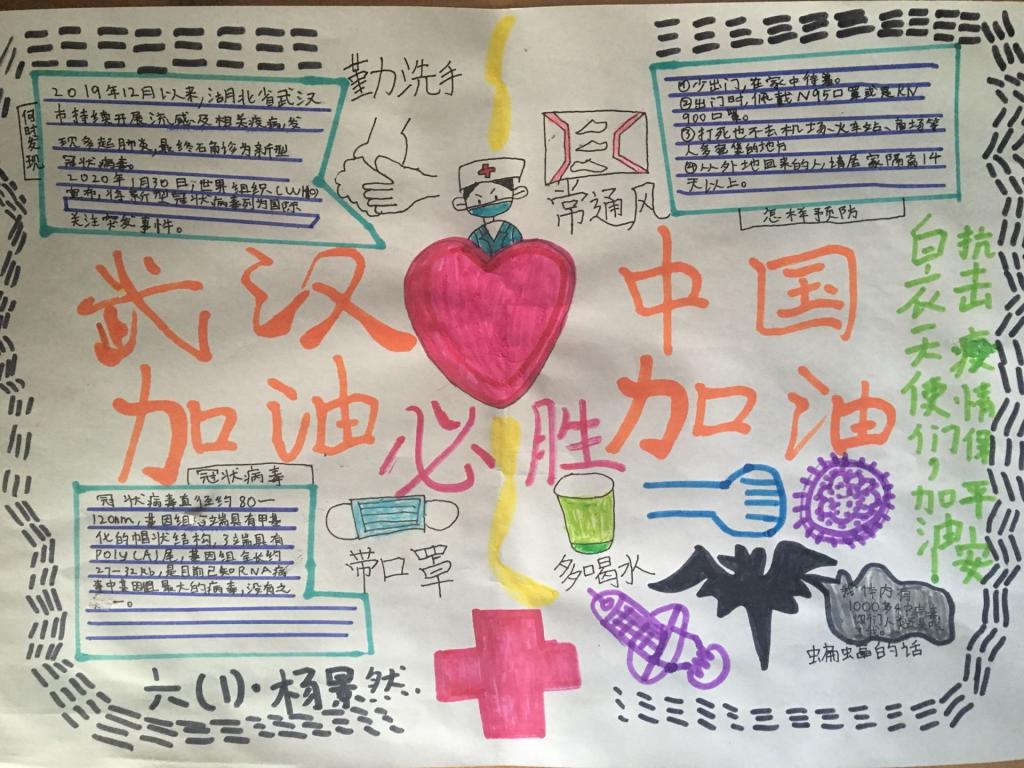 何时发现
2019年12月以来,湖北省武汉
市持续开展流感及相关疾病,发
现多起肺炎,最终
为新型
冠状病毒。
2020年1月30日,世界组织(WHO)
宣布,将新型冠状病毒列为国际
关注突发事件。
勤洗手
常通风
①少出门,在家中
②出门时,佩戴N95口罩或是KN
900口罩。
③打死也不去机场、火车站、商场等
人多密集的地方
④从外地回来的人请居家隔离14
天以上。
怎样预防
武汉
加油
中国
加油
必胜
抗击疫情保平安
白衣天使们,加油!
冠状病毒
冠状病毒直径约80—
120nm,基因组5'端具有甲基
化的帽状结构,3'端具有
POLY(A)尾,基因组全长约
27-32Kb,是目前已知RNA病
毒中基因组最大的病毒,没有之
一。
带口罩
多喝水
我体内有
1000多种病毒
蝙蝠的话
六(1)·杨景然.